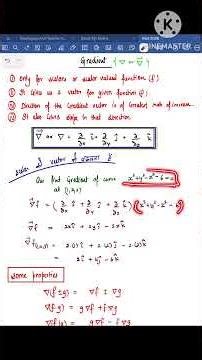 KINEMASTER
Gradient { ∇ or ∇⃗ }
① Only for vectors or scalar valued function (f)
② It gives us a vector for given function (f)
③ Direction of the Gradient vector is of Greatest rate of increase
④ It also gives slope in that direction
∇⃗ or ∇ = ∂/∂x î + ∂/∂y ĵ + ∂/∂z k̂
vector of
Que find Gradient of curve x²+y²-z²-6=0
at (1,2,3)
∇⃗f = (∂/∂x î + ∂/∂y ĵ + ∂/∂z k̂)(x²+y²-z²-6)
∇⃗f = 2xî + 2yĵ - 2zk̂
∇⃗f(1,2,3) = 2(1)î + 2(2)ĵ - 2(3)k̂
= 2î + 4ĵ - 6k̂
Some properties
∇(f±g) = ∇f ± ∇g
∇(f·g) = g∇f + f∇g
g∇f - f∇g